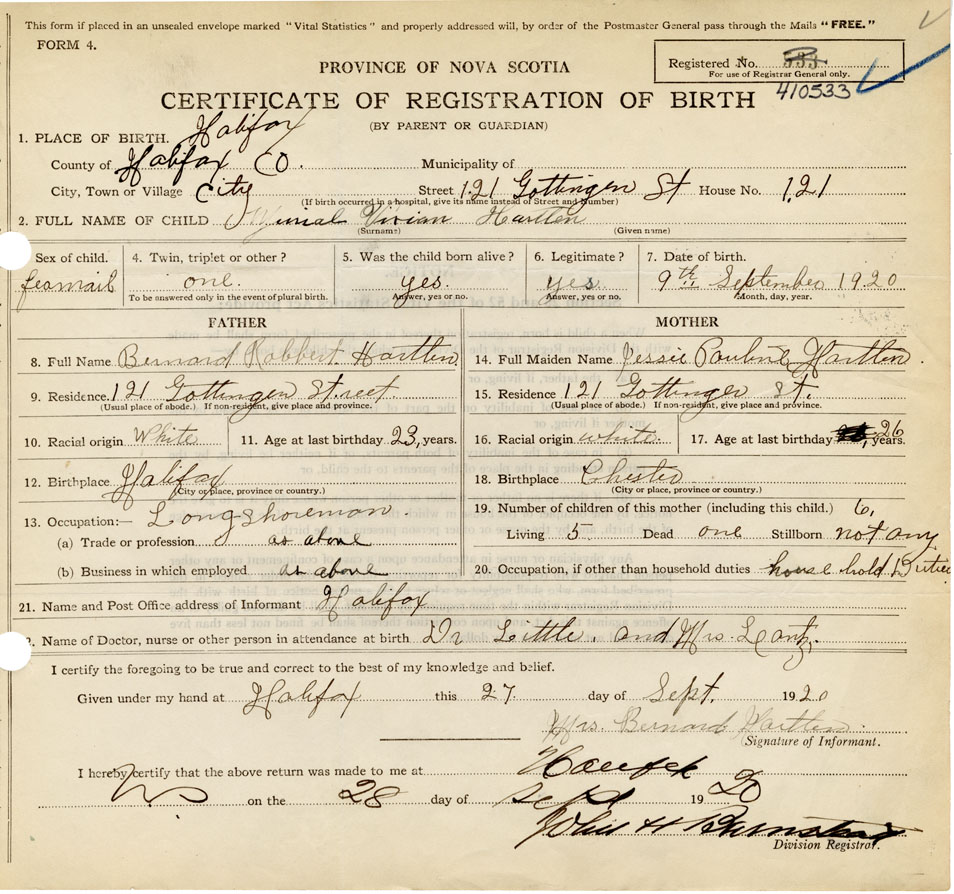 This form if placed in an unsealed envelope marked "Vital Statistics" and properly addressed will, by order of the Postmaster General pass through the Mails "FREE."
FORM 4.
Registered No. 533
For use of Registrar General only.
410533
PROVINCE OF NOVA SCOTIA
CERTIFICATE OF REGISTRATION OF BIRTH
(BY PARENT OR GUARDIAN)
1. PLACE OF BIRTH. Halifax
County of Halifax CO. Municipality of
City, Town or Village City Street 121 Gottingen St House No. 121
(If birth occurred in a hospital, give its name instead of Street and Number)
2. FULL NAME OF CHILD Vivian Hartlen
(Surname) (Given name)
Sex of child. 4. Twin, triplet or other? 5. Was the child born alive? 6. Legitimate? 7. Date of birth.
feamail one. yes. yes 9th September 1920
To be answered only in the event of plural birth. Answer, yes or no. Answer, yes or no. Month, day, year.
FATHER MOTHER
8. Full Name Bernard Robbert Hartlen 14. Full Maiden Name Jessie Pauline Hartlen.
9. Residence. 121 Gottingen Street 15. Residence 121 Gottinger St.
(Usual place of abode.) If non-resident, give place and province. (Usual place of abode.) If non-resident, give place and province.
10. Racial origin White 11. Age at last birthday 23, years. 16. Racial origin white 17. Age at last birthday 26 years.
12. Birthplace Halifax 18. Birthplace Chester
(City or place, province or country.) (City or place, province or country.)
13. Occupation:— Longshoreman. 19. Number of children of this mother (including this child.) 6,
(a) Trade or profession as above Living 5 Dead one Stillborn not any
(b) Business in which employed as above 20. Occupation, if other than household duties house hold Duties
21. Name and Post Office address of Informant Halifax
2. Name of Doctor, nurse or other person in attendance at birth Dr Little. and Mrs Lantz.
I certify the foregoing to be true and correct to the best of my knowledge and belief.
Given under my hand at Halifax this 27 day of Sept. 1920
Mrs. Bernard Hartlen
Signature of Informant.
I hereby certify that the above return was made to me at Halifax
NS on the 28 day of Sept 1920
John H
Division Registrar.